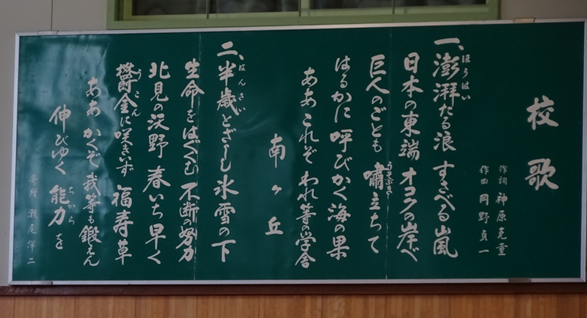 校歌
作詞 神原克重
作曲 岡野貞一
一、澎湃たる浪 すさべる嵐
ほうはい
日本の東端 オホツクの岸べ
巨人のごとも 嘯立ちて
はるかに 呼びかく海の果
ああこれぞ われ等の学舎
南ヶ丘
二、半歳とざしし氷雪の下
はんさい
生命をはぐくむ 不断の努力
北見の沃野 春いち早く
欝金に咲きいず 福寿草
うこん
ああ かくぞ 我等も鍛えん
伸びゆく 能力を
ちから
瀬尾洋二